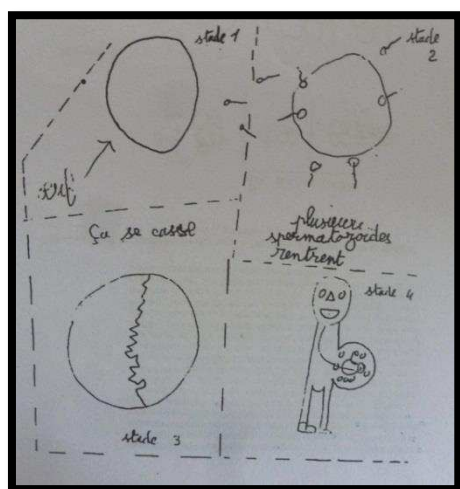 stade 1
stade
2
œuf
Ça se casse
plusieurs
spermatozoïdes
rentrent
stade 4
stade 3